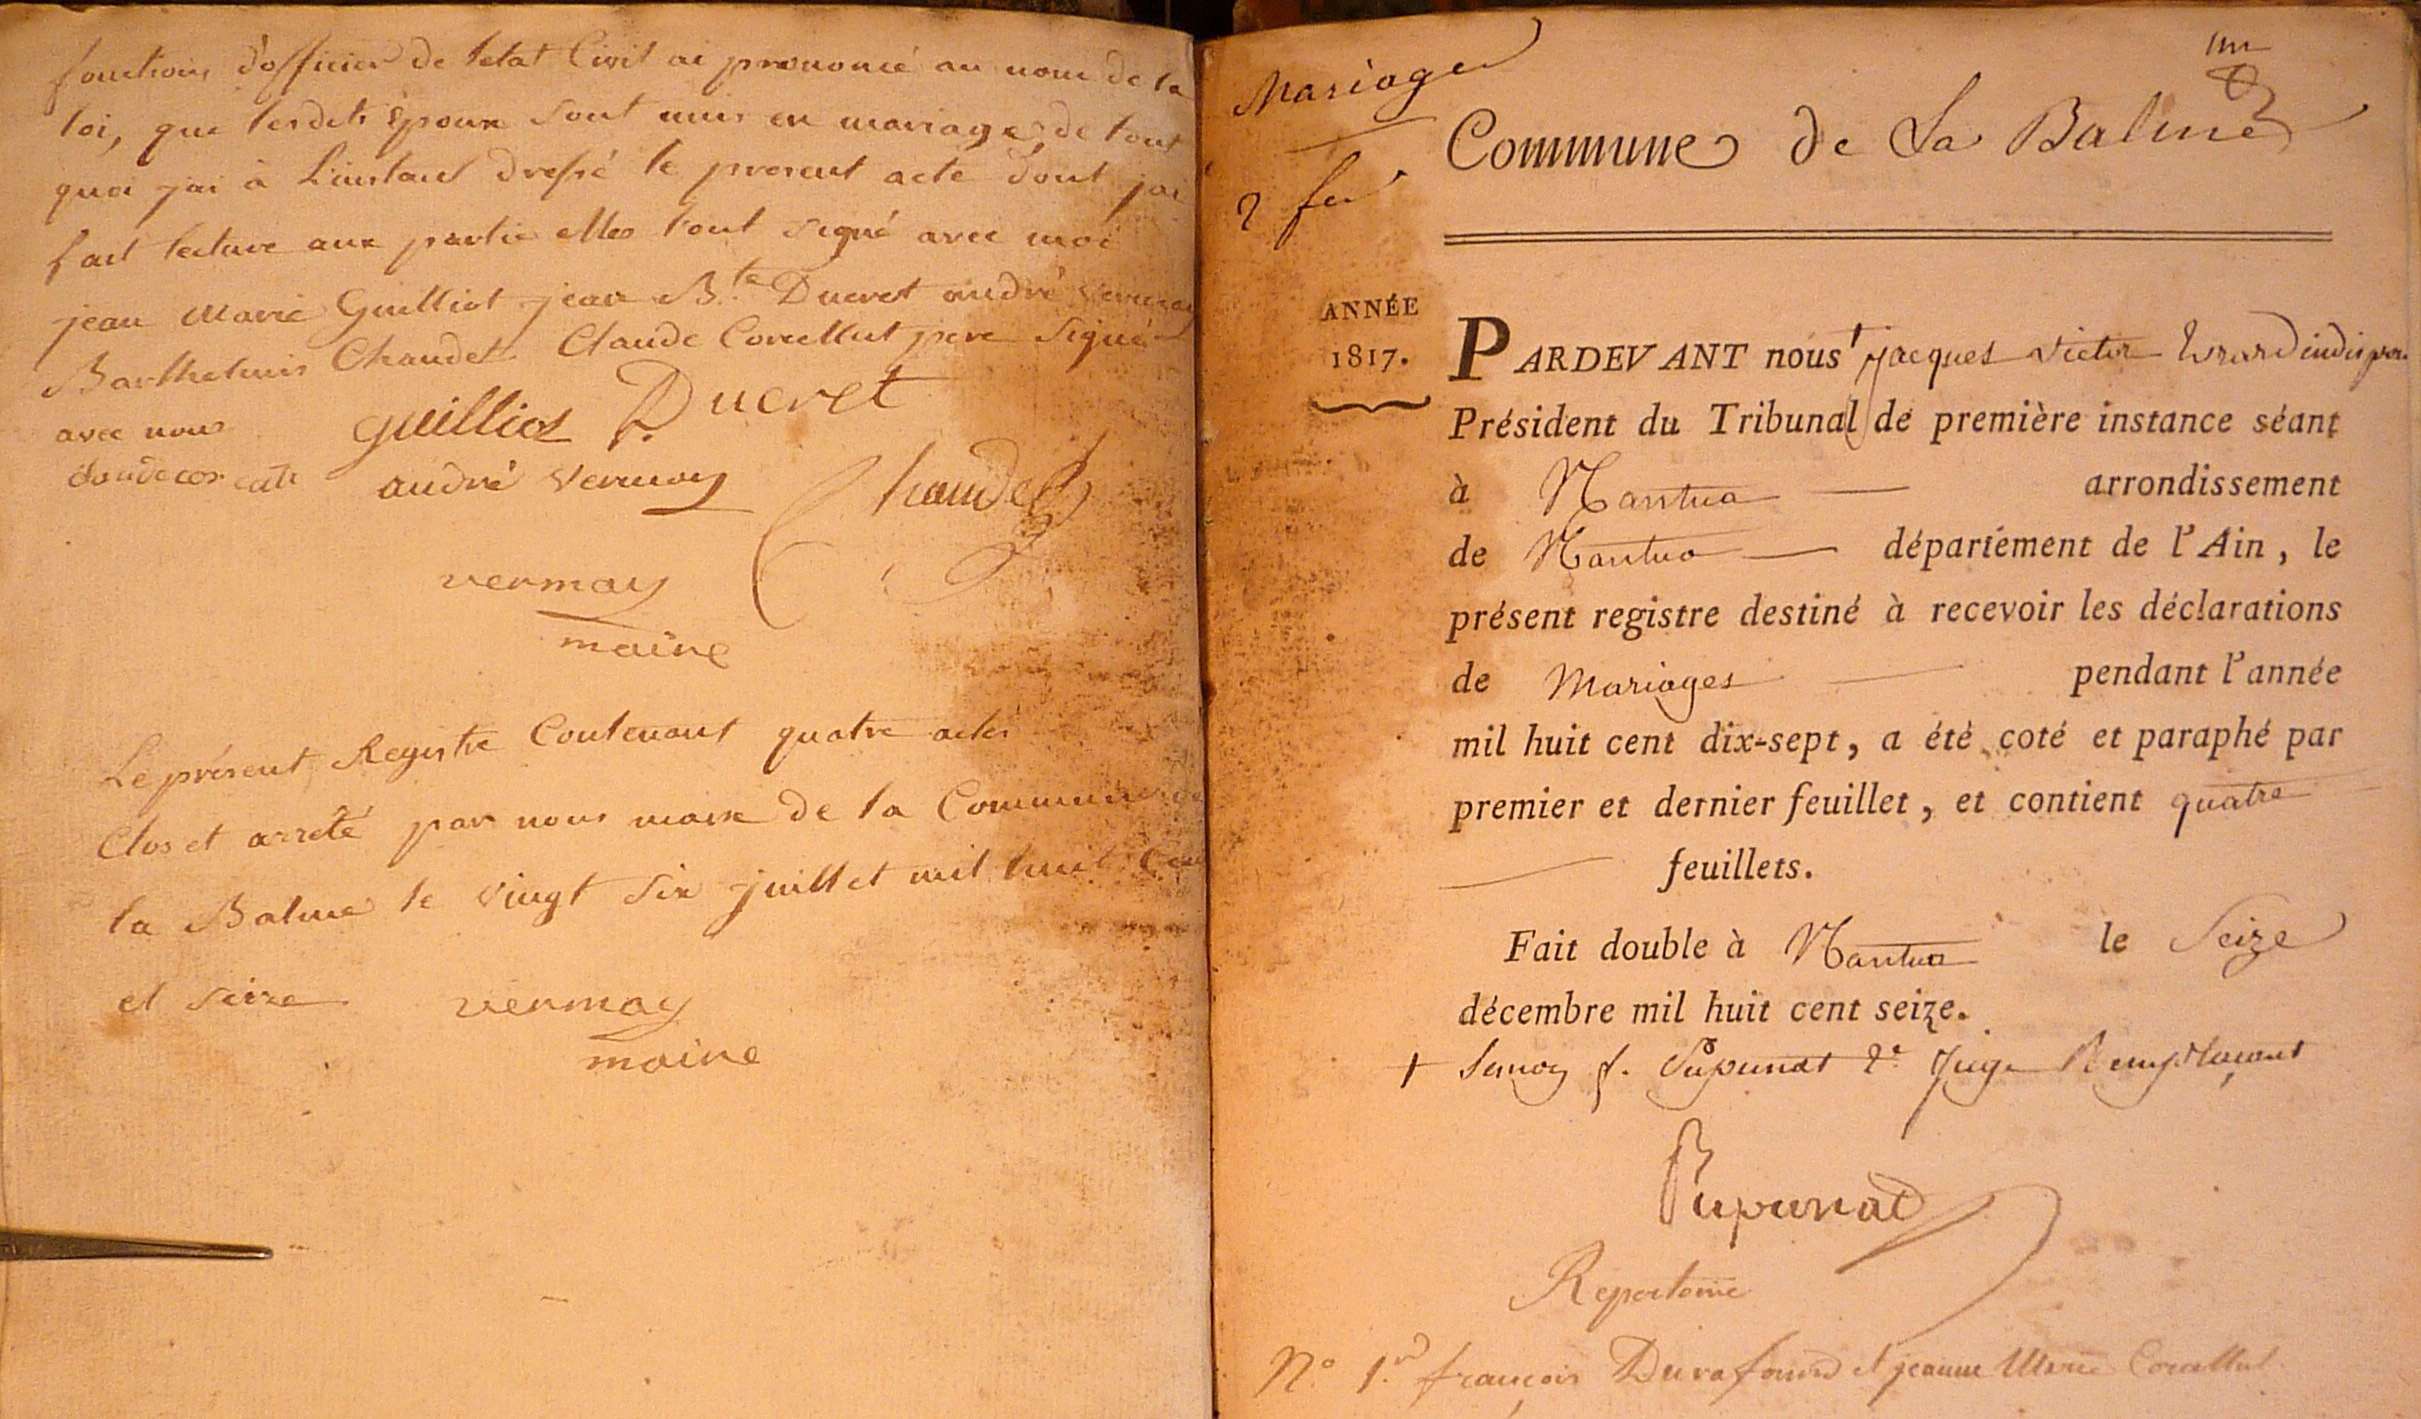 fonctions d'officier de letat Civil ai prononcé au nom de la
loi, que lesdits Epoux sont unis en mariage, de tout
quoi jai à Linstant dressé le present acte dont jai
fait lecture aux partie elles l'ont signé avec moi
jean Marie Guilliot jean B.te Ducret andré
Barthelmis Chaudet Claude Corcellut pere Signé
avec nous
guilliot Ducret
andré vermay Chaudet
vermay
maire
Le présent Registre Contenant quatre actes
Clos et arreté par nous maire de la Commune de
la Balme le vingt Six juillet mil huit Cent
et seize vermay
maire
Mariage
2 fer
Commune de La Balme
ANNÉE
1817.
PARDEVANT nous jacques victor
Président du Tribunal de première instance séant
à Nantua arrondissement
de Nantua département de l'Ain, le
présent registre destiné à recevoir les déclarations
de Mariages pendant l'année
mil huit cent dix-sept, a été coté et paraphé par
premier et dernier feuillet, et contient quatre
feuillets.
Fait double à Nantua le Seize
décembre mil huit cent seize.
+ Pupunat 2e Juge Remplaçant
Pupunat
Repertoire
N.o 1.er françois Durafourd et jeanne Marie Corcellut